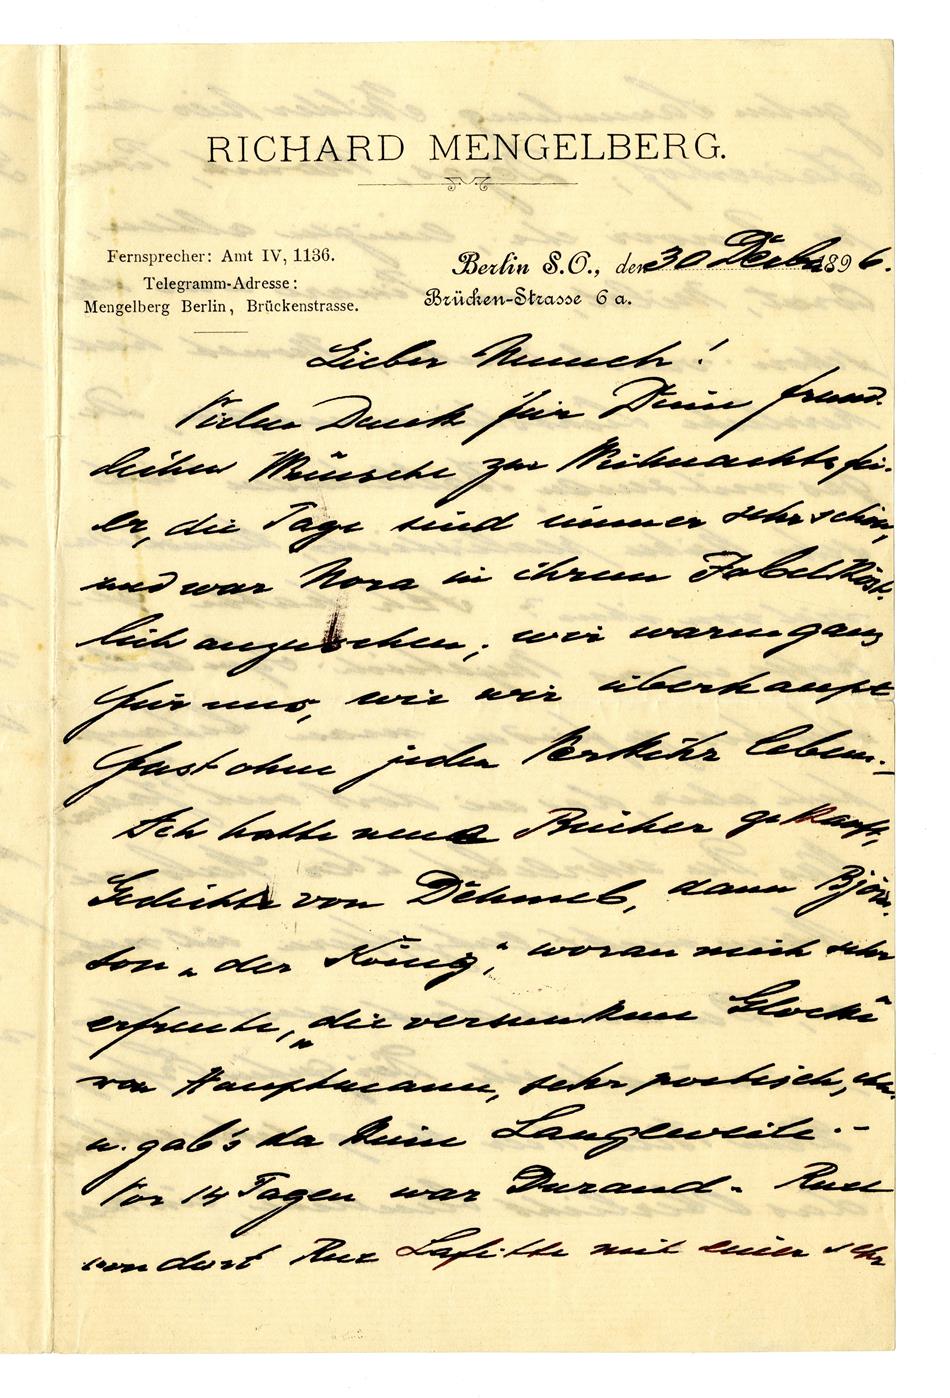 RICHARD MENGELBERG.
Fernsprecher: Amt IV, 1136.
Telegramm-Adresse:
Mengelberg Berlin, Brückenstrasse.
Berlin S.O., den 30 Decbr 1896.
Brücken-Strasse 6a.
Lieber Munch!
Vielen Dank für Deine freund-
lichen Wünsche zur Weihnachtsfei-
er, die Tage sind immer sehr schön,
und war Nora in ihrem Jubel köst-
lich anzusehen; wir waren ganz
für uns, wie wir überhaupt
fast ohne jeden Verkehr leben.-
Ich hatte neue Bücher gekauft,
Gedichte von Dehmel, dann Björn-
son „der König“, woran mich sehr
erfreute, „die versunkene Glocke“
von Hauptmann, sehr poetisch,
u. gab's da keine Langeweile.-
Vor 14 Tagen war Durand-Ruel
von dort Rue Lafitte mit einer sehr